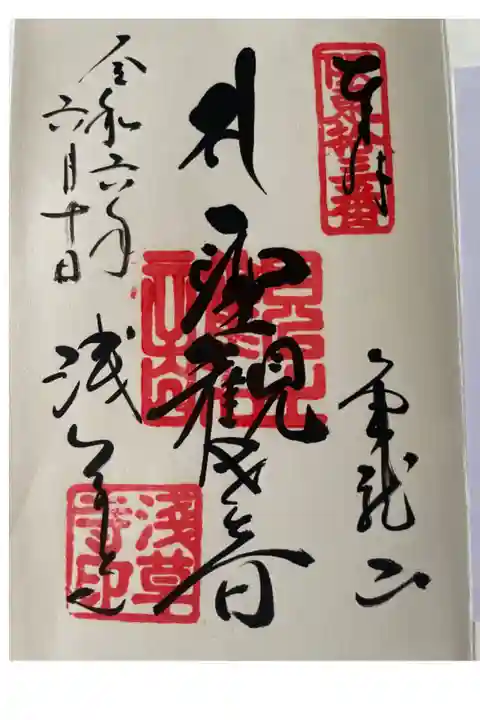 奉拝
坂東拾三番
金龍山
聖観世音
浅草寺
浅草寺印
令和六年
六月十日